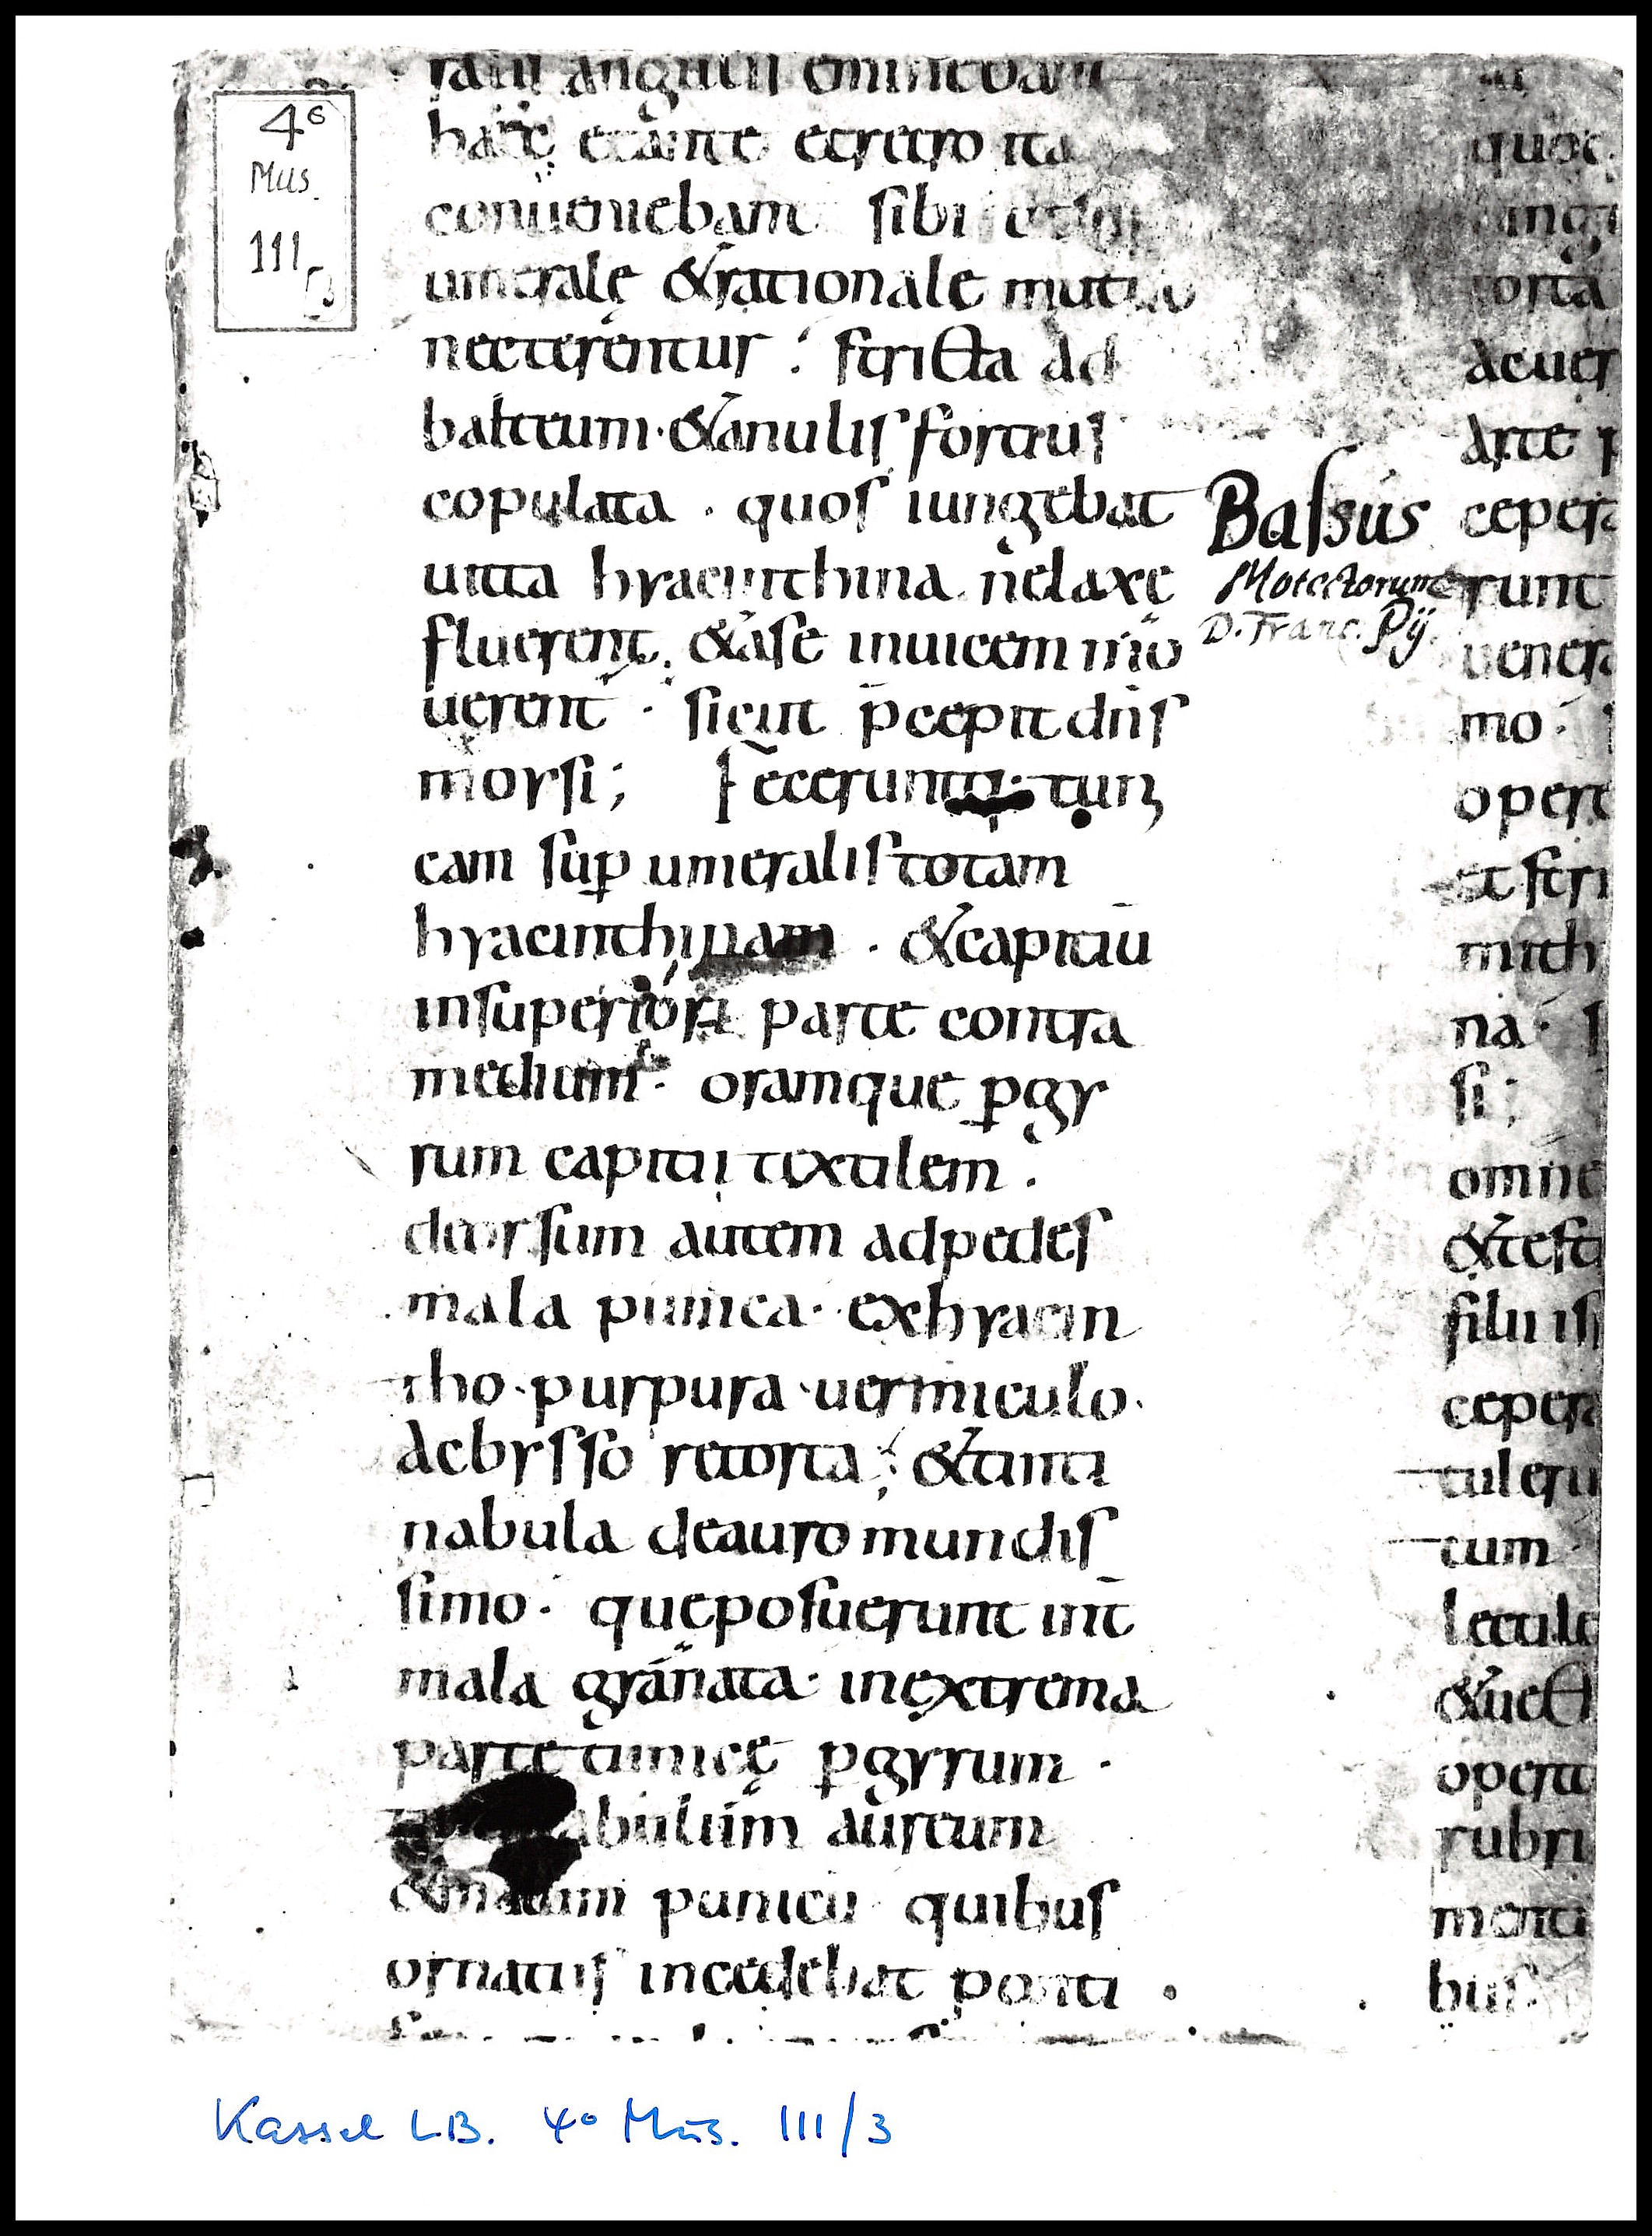 4º
Mus.
111
raui anguli eminebant
haec et ante et retro ita
conueniebant sibi
umerale &rationale mutuo
necterentur. stricta ad
balteum. &anulis fortius
copulata. quos iungebat
uitta hyacinthina. nelaxe
fluerent. &ase inuicem mo
uerent. sicut p̄cepit dn̄s
moysi; Fecerunt tuni
cam sup umeralis totam
hyacinthinam. &capitiū
insuperiori parte contra
medium. oramque pgy
rum capitii textilem.
deorsum autem adpedes
mala punica. exhyacin
tho. purpura. uermiculo.
acbysso retorta. &tinti
nabula deauro mundis
simo. queposuerunt int̄
mala granata. inextrema
parte tunicę pgyrum.
abulum aureum
&malum punicū quibus
ornatus incedebat ponti
Bassus
Motectorum
D. Franc. Pij.
quoc
torta
acuer
arte p
cepera
runt
uenera
mo.
opere
et stri
mith
na.
si;
omne
&testi
filii isr
cepera
tuleru
tum
lectule
&uect
operi
rubri
menti
bus
Kassel LB. 4º Mus. 111/3